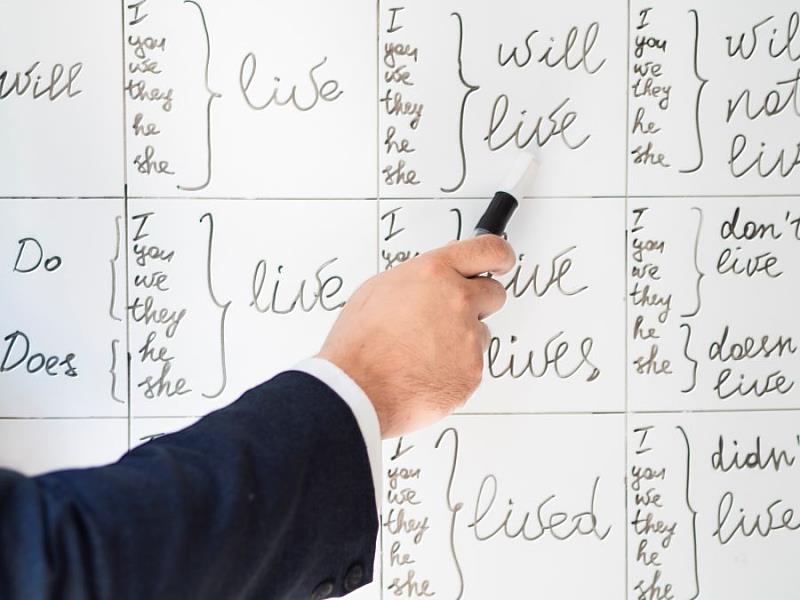 will
I
you
we
they
he
she
live
I
you
we
they
he
she
will
live
I
you
we
they
he
she
wil
not
liv
Do
Does
I
you
we
they
he
she
live
I
you
live
lives
I
you
we
they
he
she
don't
live
doesn
live
I
you
we
they
he
she
lived
I
you
we
they
he
she
didn'
live